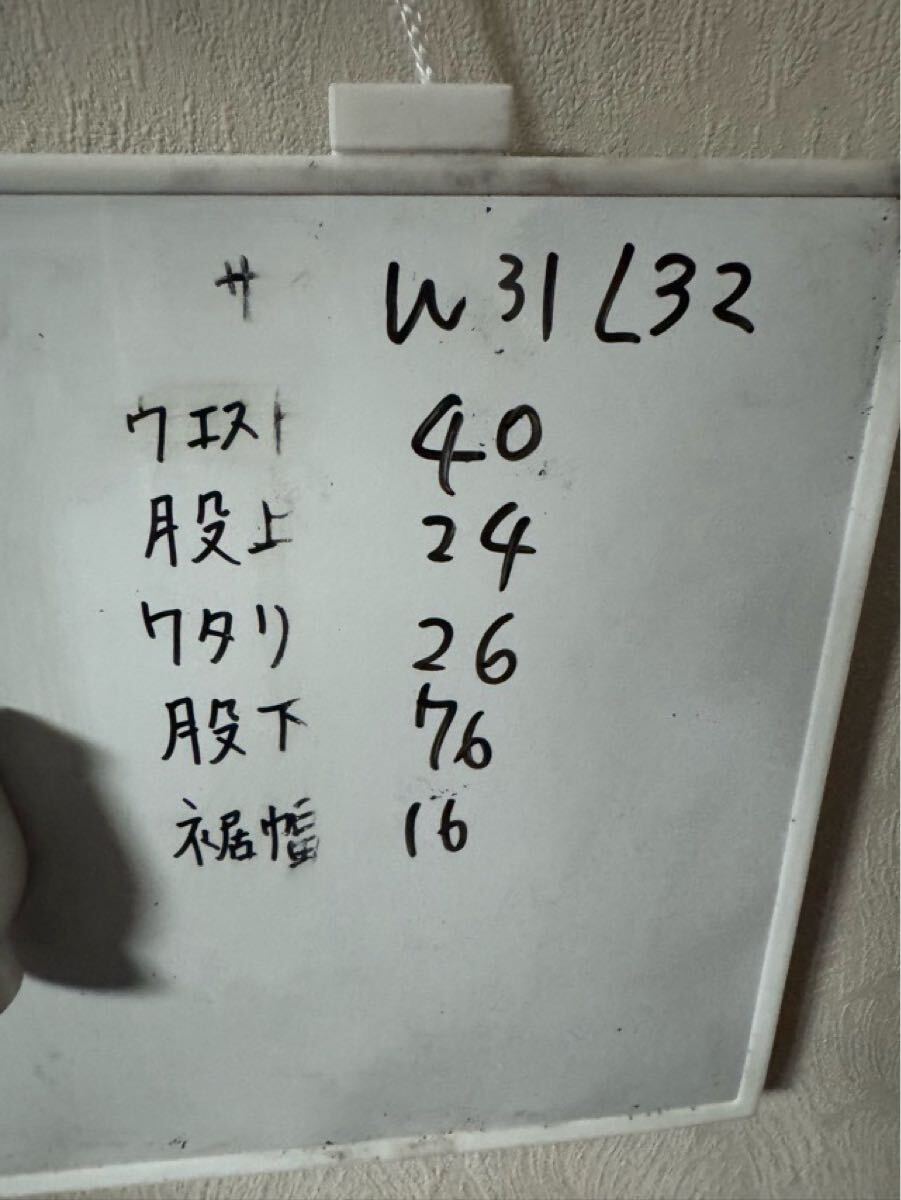 サ W31 L32
ウエスト 40
股上 24
ワタリ 26
股下 76
裾幅 16